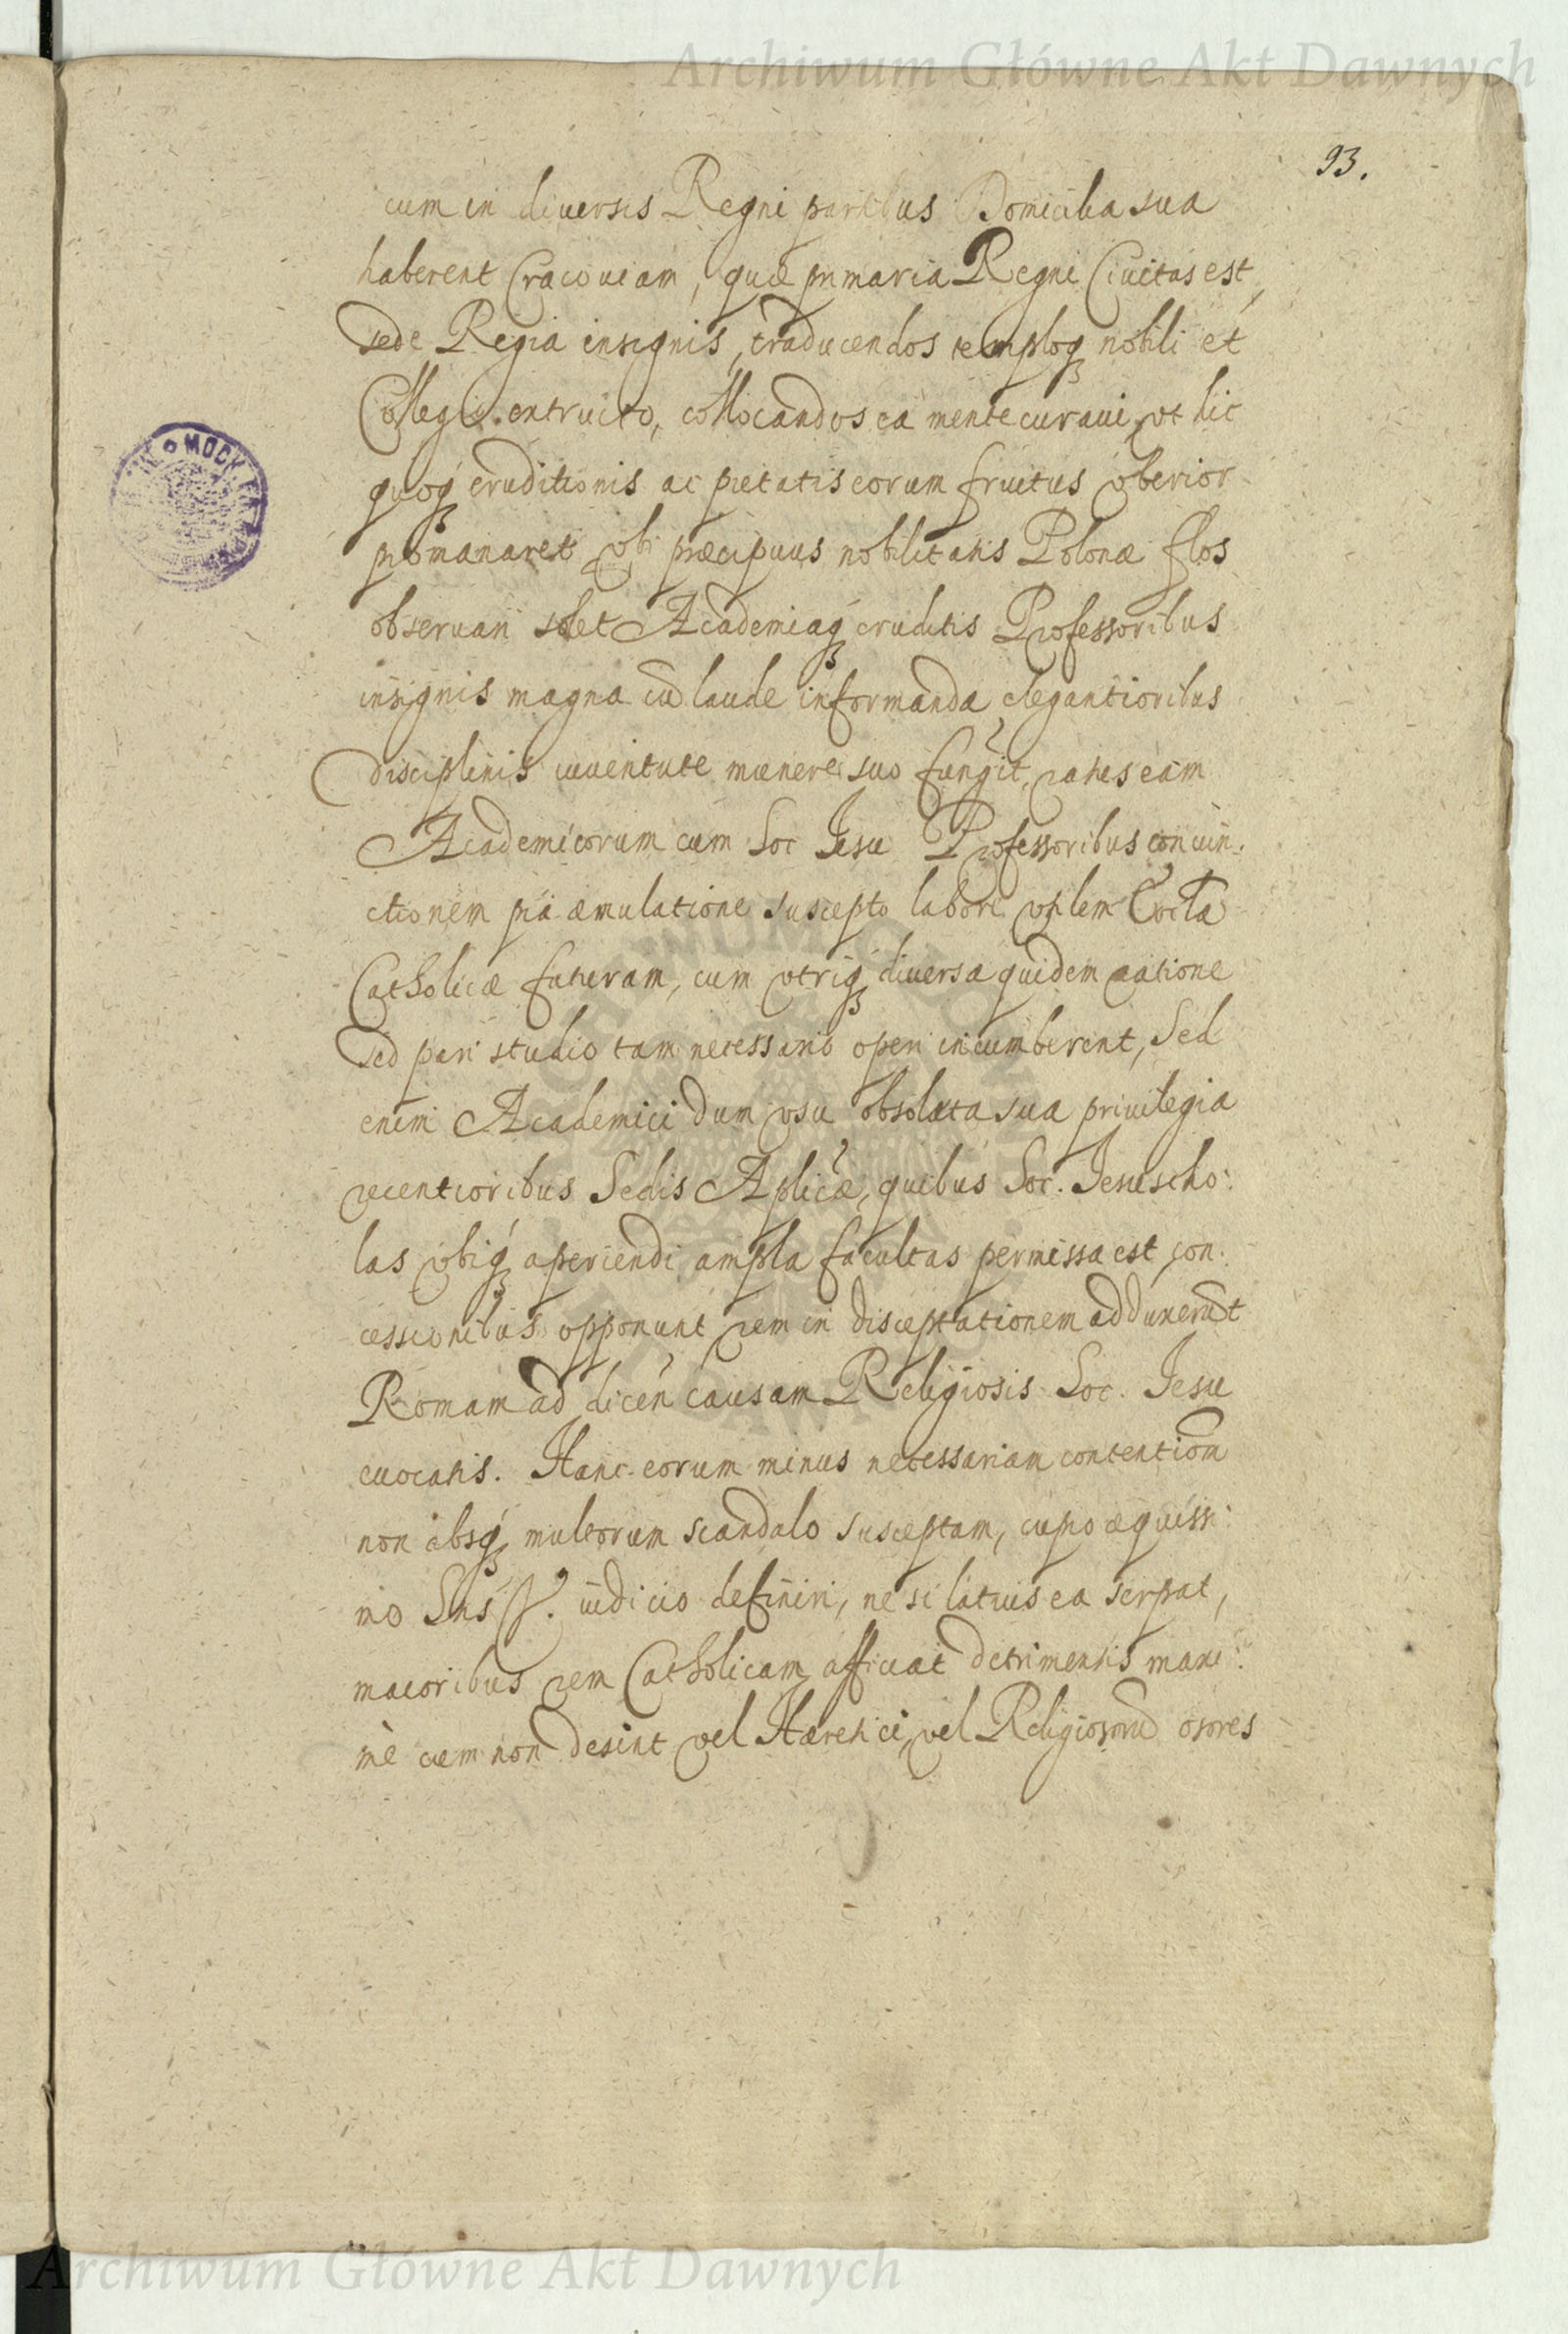 Archiwum Główne Akt Dawnych
93.
cum in diuersis Regni partibus Domicilia sua
haberent Cracouiam, quæ primaria Regni Ciuitas est,
sede Regia insignis, traducendos temploq nobili et
Collegio extructo, collocandos ea mente curaui, vt hic
quoq eruditionis ac pietatis eorum fructus vberior
promanaret vbi præcipuus nobilitatis Polonæ flos
obseruari solet Academiaq eruditis Professoribus
insignis magna cū laude informanda elegantioribus
disciplinis iuuentute munere suo fungit, ratus eam
Academicorum cum Soc Iesu Professoribus coniun.
ctionem piâ æmulatione suscepto labori vtilem Eccla
Catholicæ futuram, cum vtriq diuersa quidem ratione
sed pari studio tam necessario operi incumberent, Sed
enim Academici dum vsu obsoleta sua priuilegia
recentioribus Sedis Aplicæ, quibus Soc. Iesu scho:
las vbiq aperiendi ampla facultas permissa est con:
cessionibus opponunt rem in disceptationem adduxerūt
Romam ad dicen causam Religiosis Soc. Iesu
euocatis. Hanc eorum minus necessariam contentiom
non absq multorum scandalo susceptam, cupio æquissi:
mo Sns V. iudicio definiri, ne si latius ea serpat,
maioribus rem Catholicam afficiat detrimentis maxi:
mè cum non desint vel Hæretici, vel Religiosorū osores
Archiwum Główne Akt Dawnych